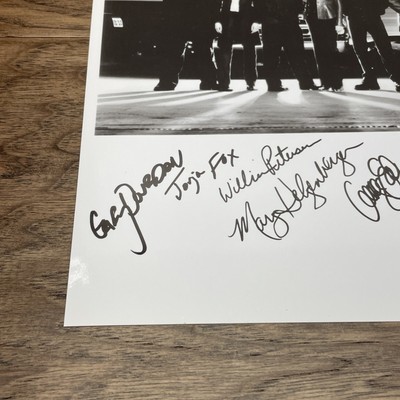 Gary Dourdan
Jorja Fox
William Petersen
Marg Helgenberger